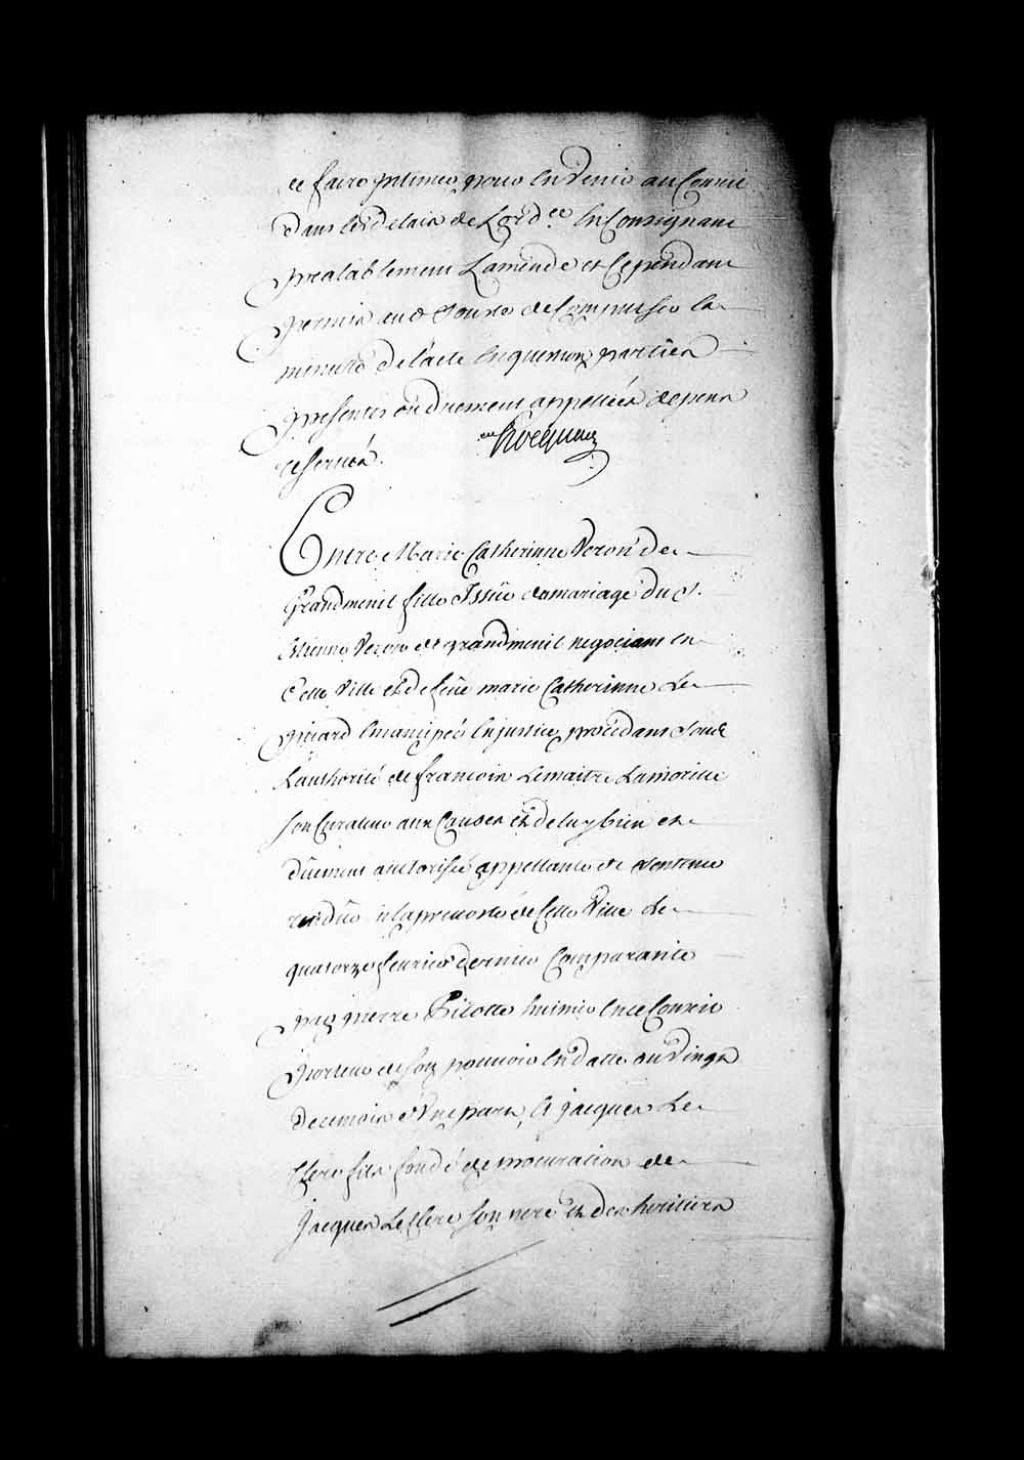 ce faire intimer pour en venir au Conseil
dans les delais de Lord.ce En Consignant
prealablement Lamende et Cependant
permis aud. de Compulser la
minute de lacte En question parties
presentes ou duement appellées depens
reservés. Hocquart
Entre Marie Catherinne Veron de
Grandmenil fille Issüe du mariage du S.
Etienne Veron de grandmenil negotiant En
Cette Ville et de feüe marie Catherinne Le
picard Emancipée En justice, procedant sous
Lauthorité de francois Lemaitre Lamorille
son Curateur aux Causes et de luy bien et
düement auctorisée appellante de sentence
rendüe en la prevosté de Cette Ville le
quatorze feurier dernier Comparante
par pierre Pilotte huissier En ce Conseil
porteur de son pouvoir En datte du Vingt
de ce mois d'Une part, Et jacques Le
Clerc fils fondé de procuration de
Jacques Le Clerc son pere et des heritiers